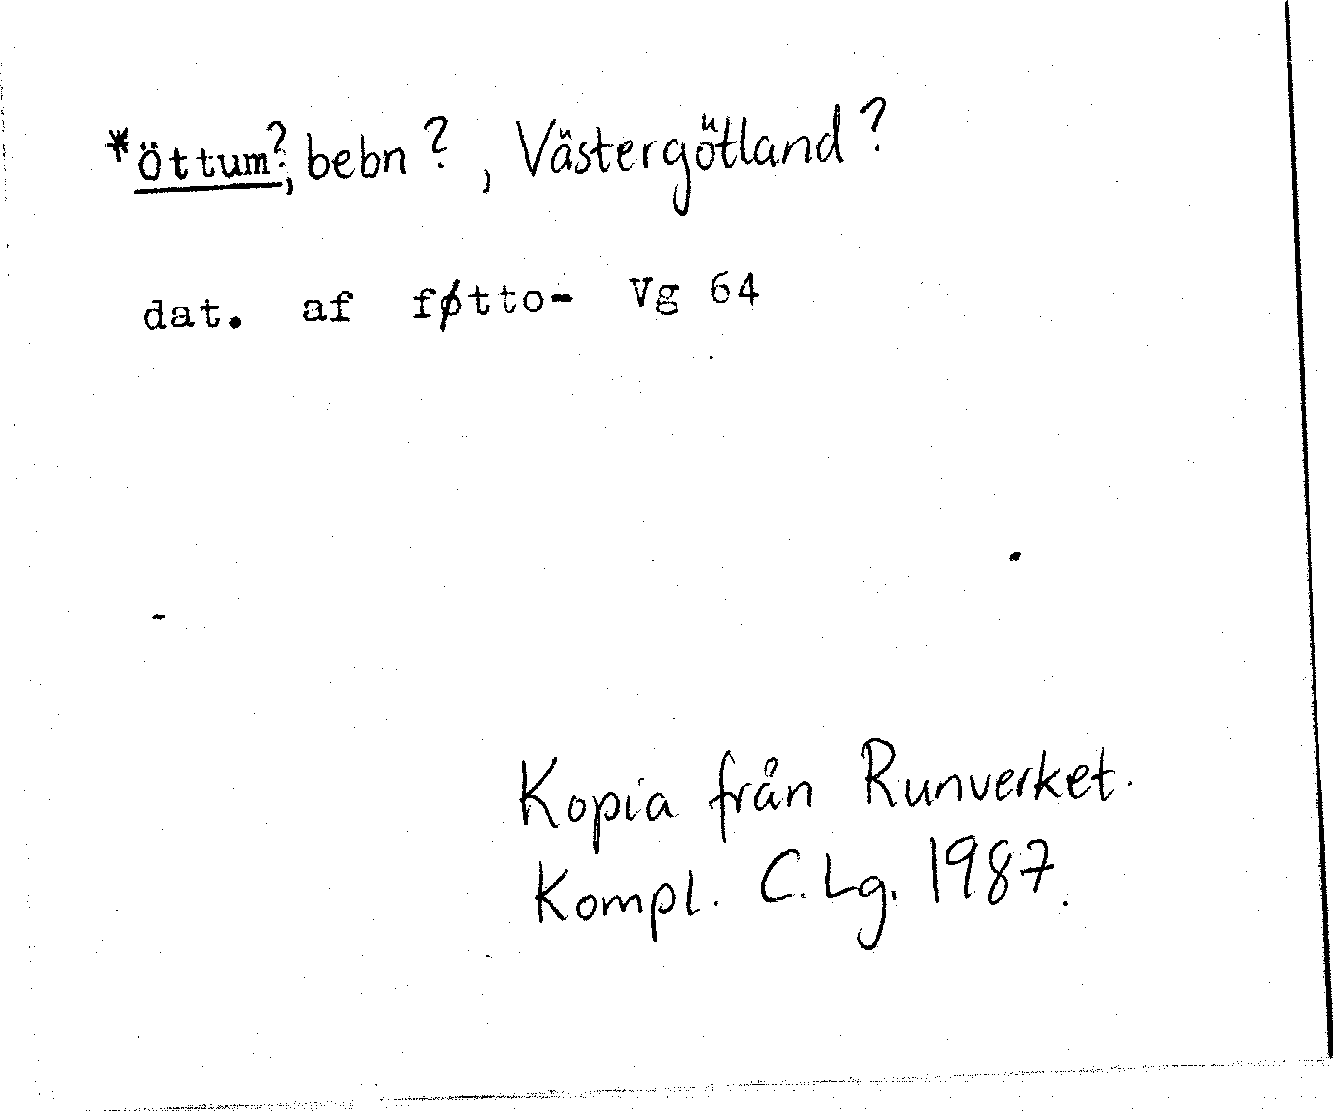 *Öttum?, bebn?, Västergötland?
dat. af føtto- Vg 64
Kopia från Runverket.
Kompl. C.Lg. 1987.